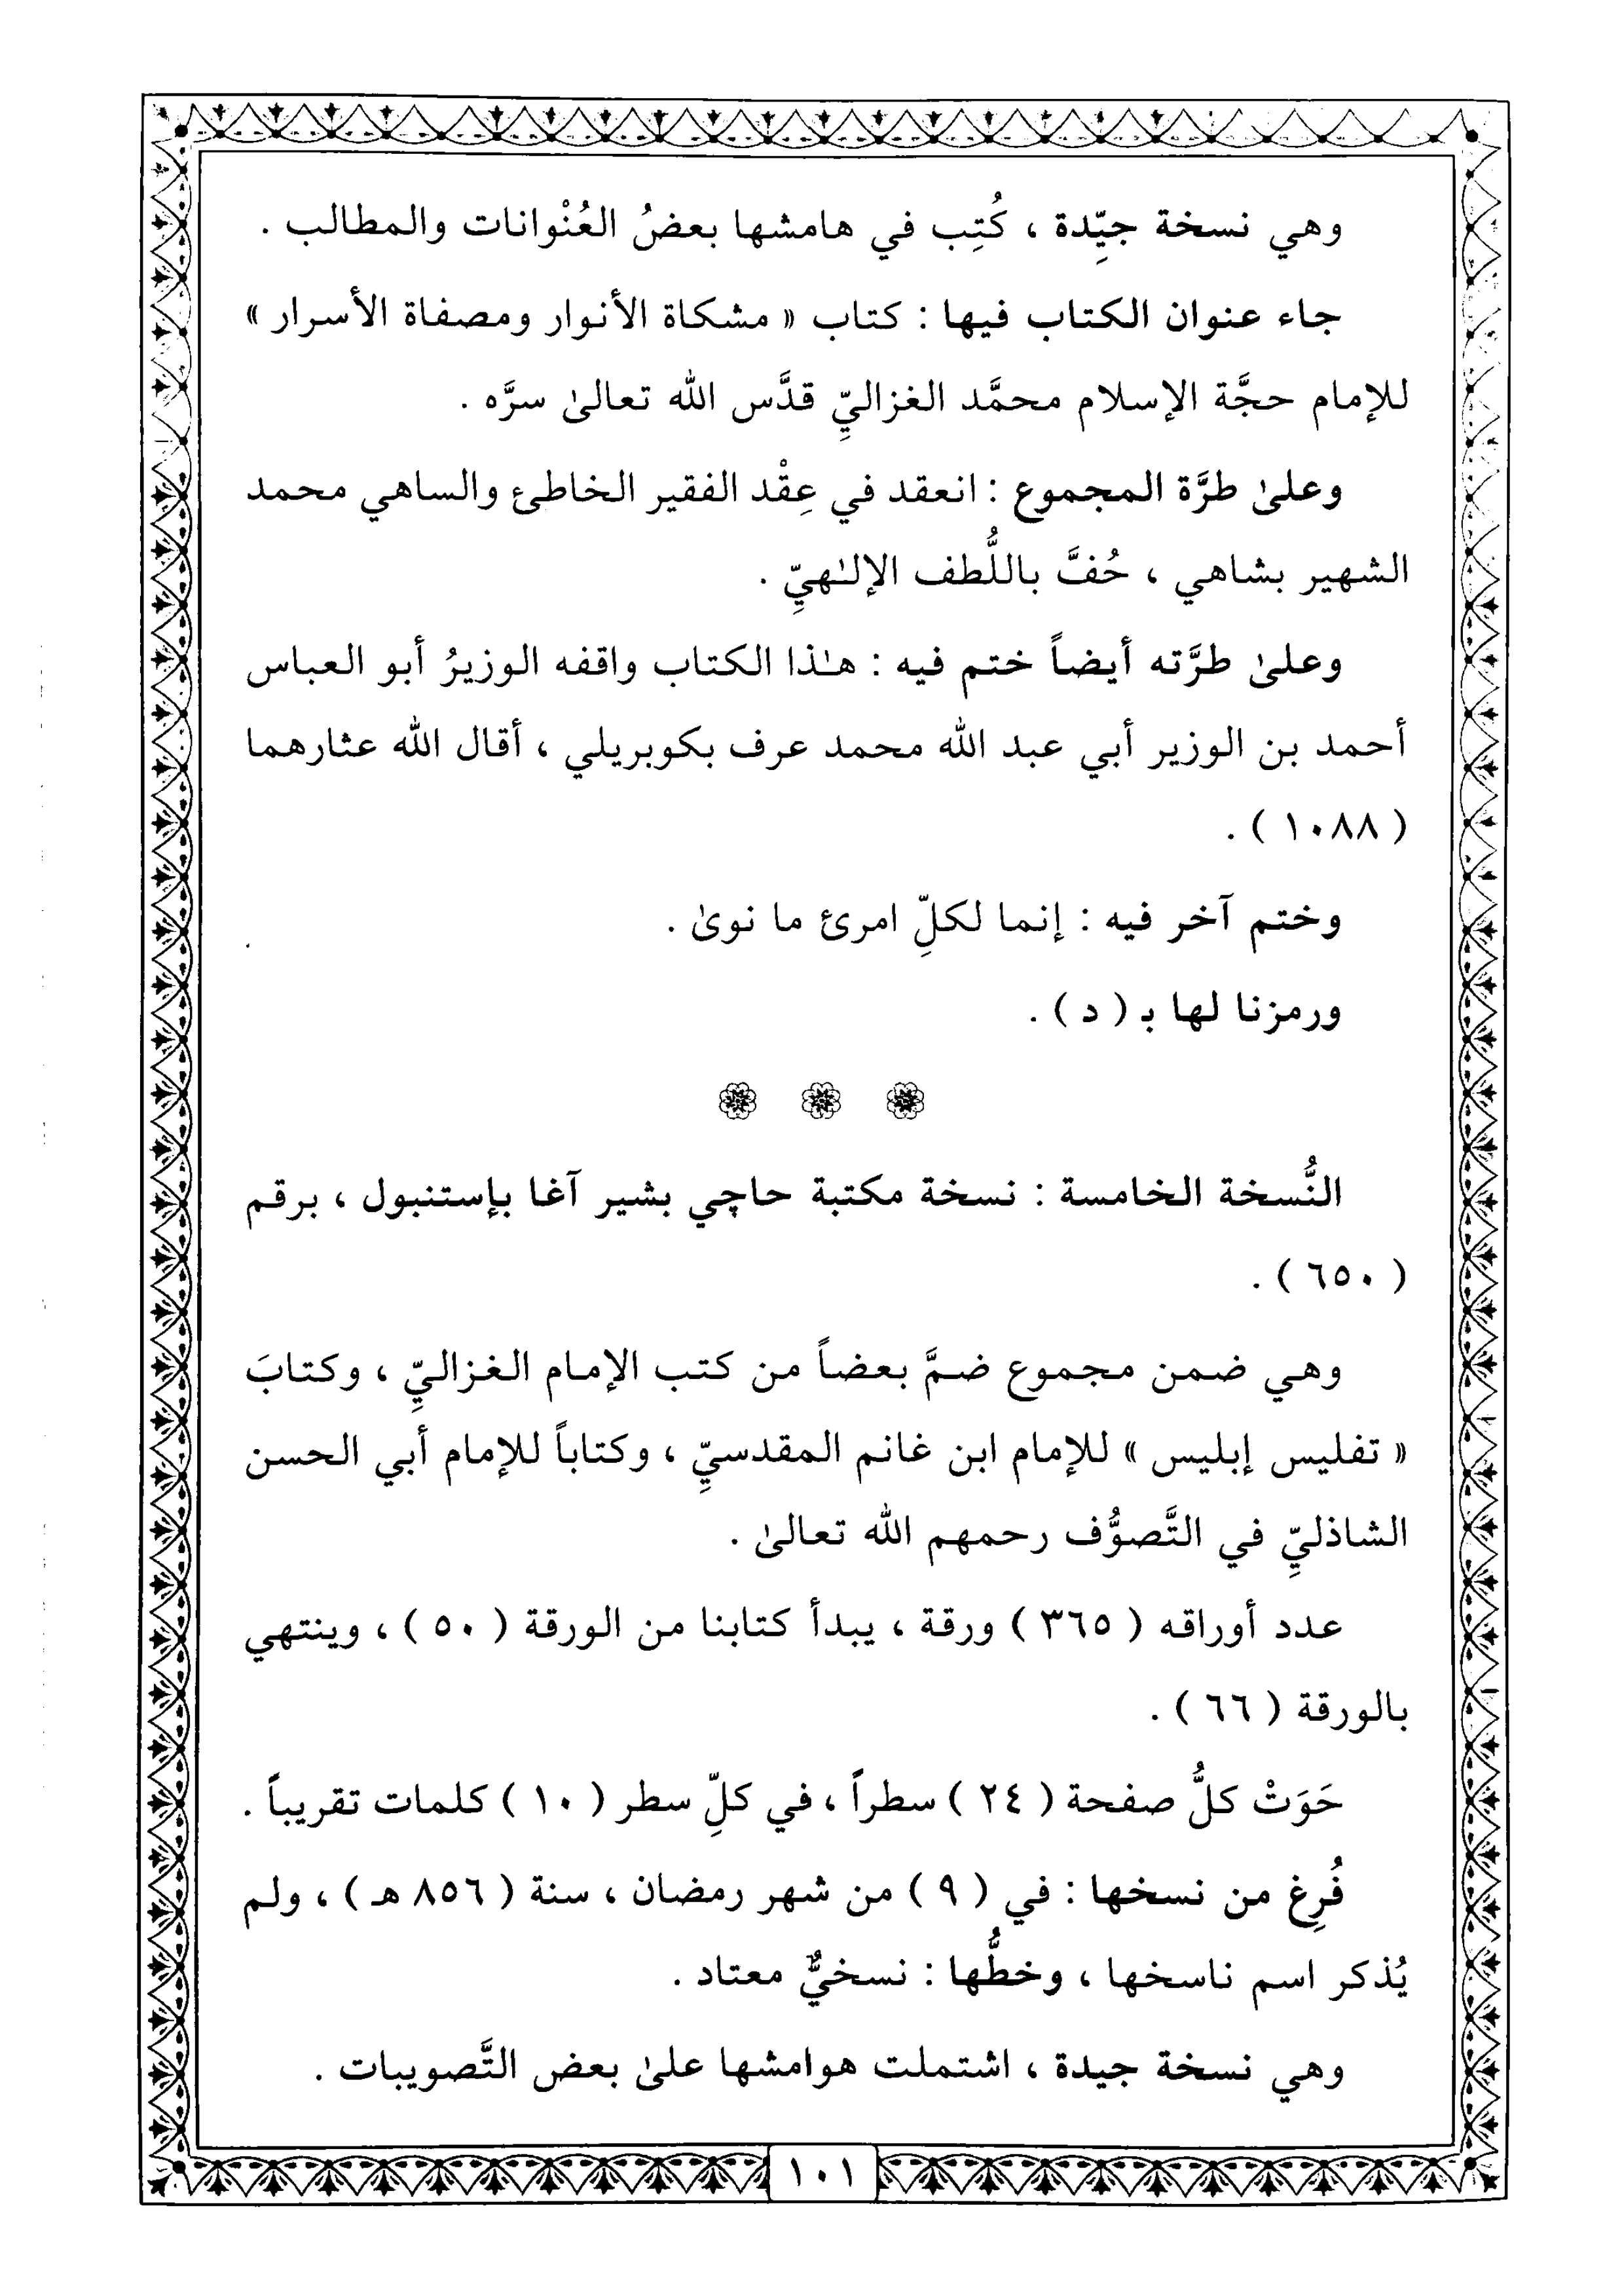 وهي نسخة جيّدة ، كُتِب في هامشها بعضُ العُنْوانات والمطالب .
جاء عنوان الكتاب فيها : كتاب « مشكاة الأنوار ومصفاة الأسرار »
للإمام حجَّة الإسلام محمَّد الغزاليِّ قدَّس الله تعالىٰ سرَّه .
وعلىٰ طرَّة المجموع : انعقد في عِقْد الفقير الخاطئ والساهي محمد
الشهير بشاهي ، حُفَّ باللُّطف الإلـٰهيِّ .
وعلىٰ طرَّته أيضاً ختم فيه : هـٰذا الكتاب واقفه الوزيرُ أبو العباس
أحمد بن الوزير أبي عبد الله محمد عرف بكوبريلي ، أقال الله عثارهما
( ١٠٨٨ ) .
وختم آخر فيه : إنما لكلِّ امرئ ما نوىٰ .
ورمزنا لها بـ ( د ) .
النُّسخة الخامسة : نسخة مكتبة حاچي بشير آغا بإستنبول ، برقم
( ٦٥٠ ) .
وهي ضمن مجموع ضمَّ بعضاً من كتب الإمام الغزاليِّ ، وكتابَ
« تفليس إبليس » للإمام ابن غانم المقدسيِّ ، وكتاباً للإمام أبي الحسن
الشاذليِّ في التَّصوُّف رحمهم الله تعالىٰ .
عدد أوراقه ( ٣٦٥ ) ورقة ، يبدأ كتابنا من الورقة ( ٥٠ ) ، وينتهي
بالورقة ( ٦٦ ) .
حَوَتْ كلُّ صفحة ( ٢٤ ) سطراً ، في كلِّ سطر ( ١٠ ) كلمات تقريباً .
فُرِغ من نسخها : في ( ٩ ) من شهر رمضان ، سنة ( ٨٥٦ هـ ) ، ولم
يُذكر اسم ناسخها ، وخطُّها : نسخيٌّ معتاد .
وهي نسخة جيدة ، اشتملت هوامشها علىٰ بعض التَّصويبات .
١٠١